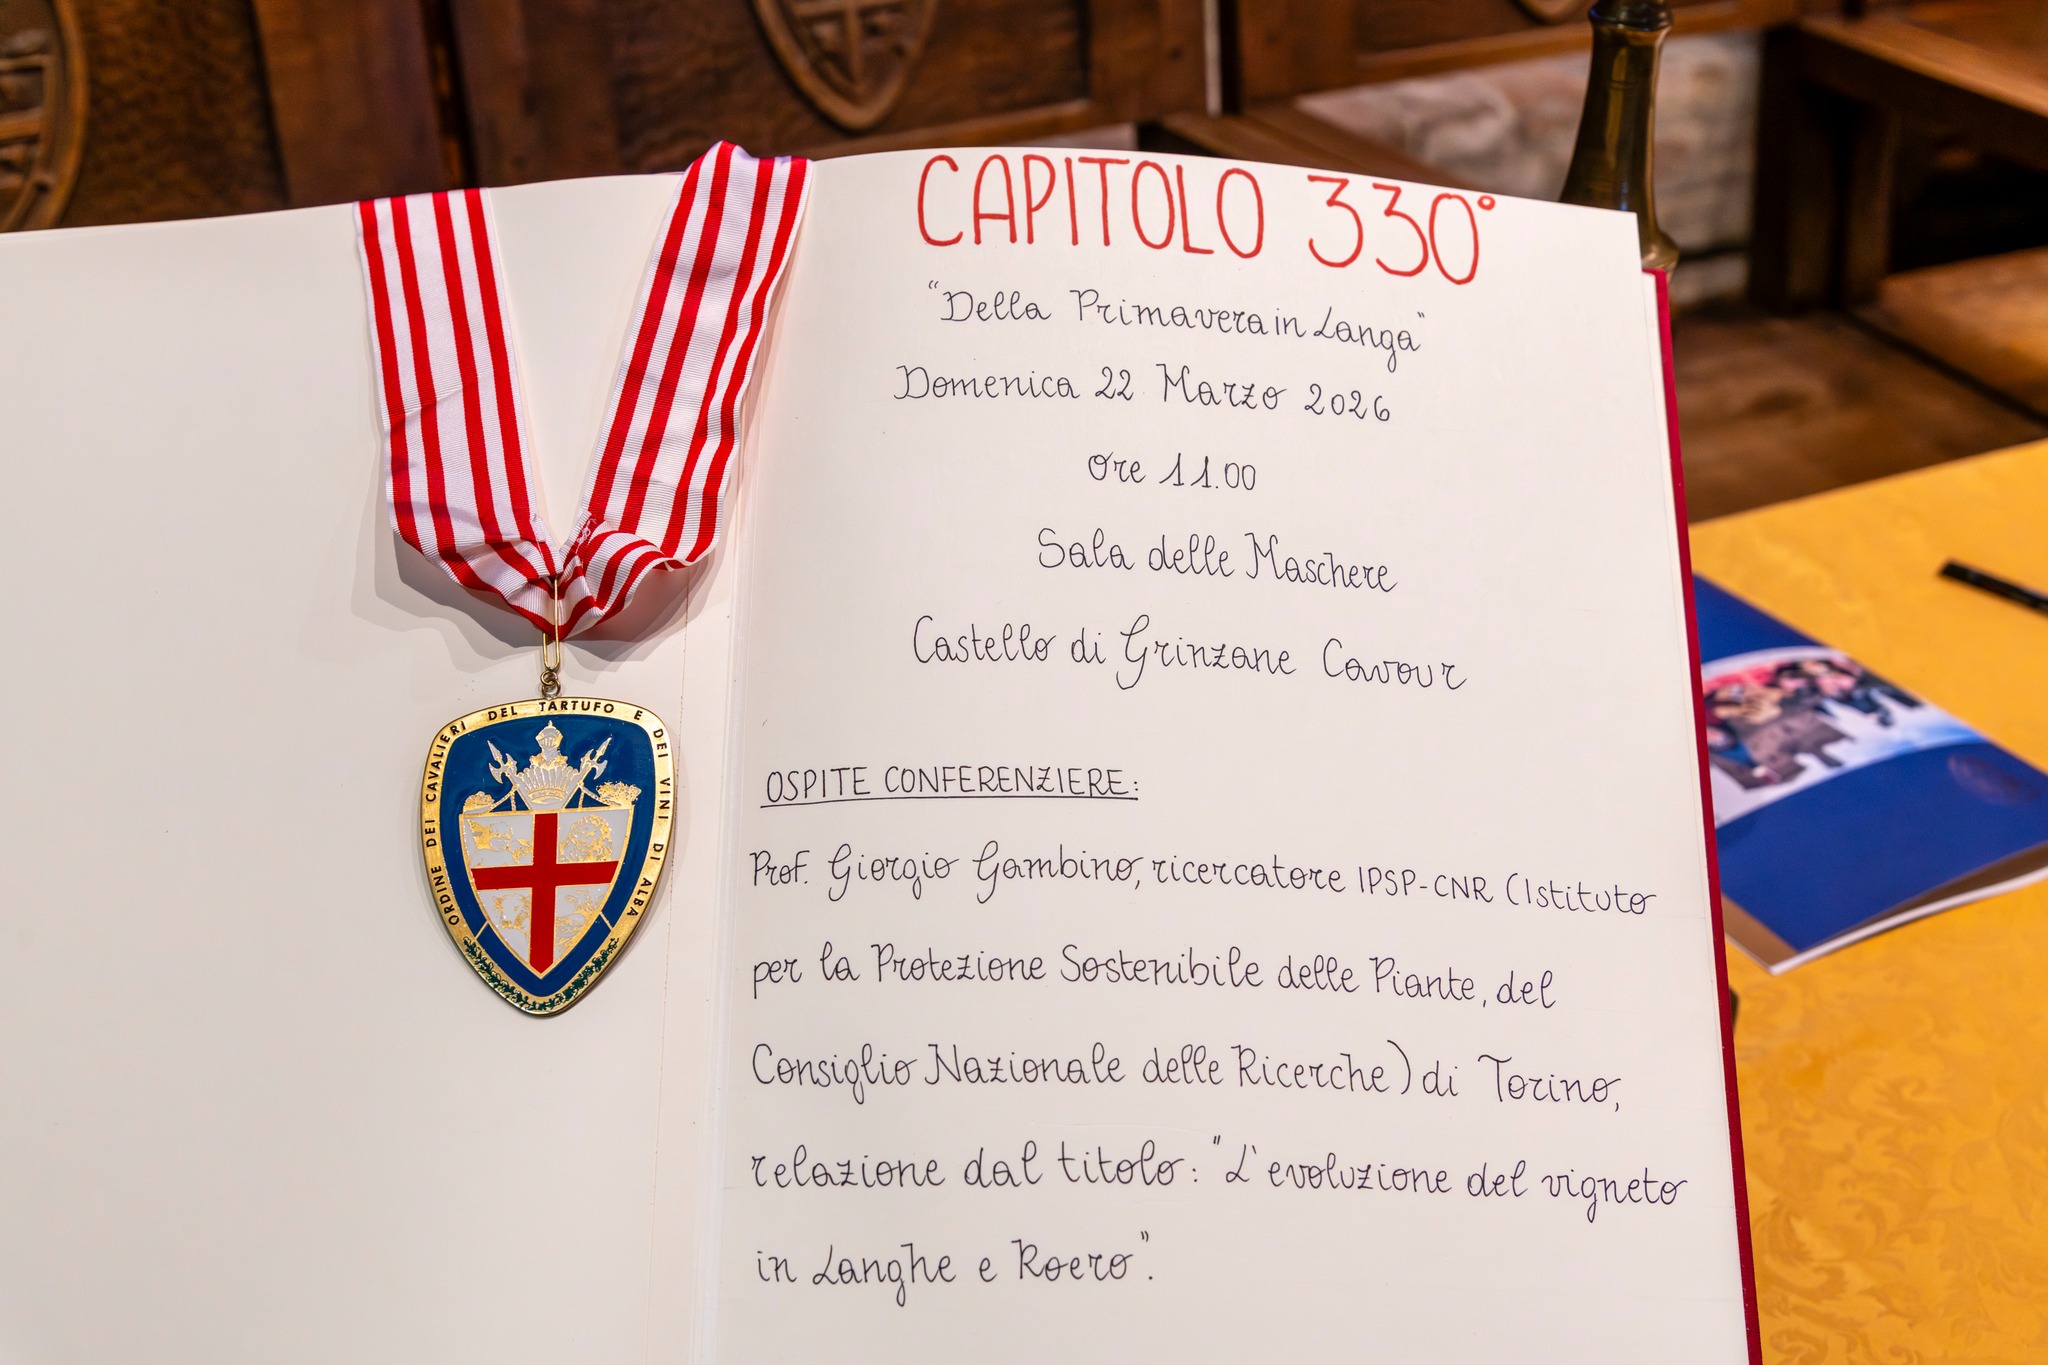 ORDINE DEI CAVALIERI DEL TARTUFO E DEI VINI DI ALBA
CAPITOLO 330°
"Della Primavera in Langa"
Domenica 22 Marzo 2026
ore 11.00
Sala delle Maschere
Castello di Grinzane Cavour
OSPITE CONFERENZIERE:
Prof. Giorgio Gambino, ricercatore IPSP-CNR (Istituto
per la Protezione Sostenibile delle Piante, del
Consiglio Nazionale delle Ricerche) di Torino,
relazione dal titolo: "L'evoluzione del vigneto
in Langhe e Roero".